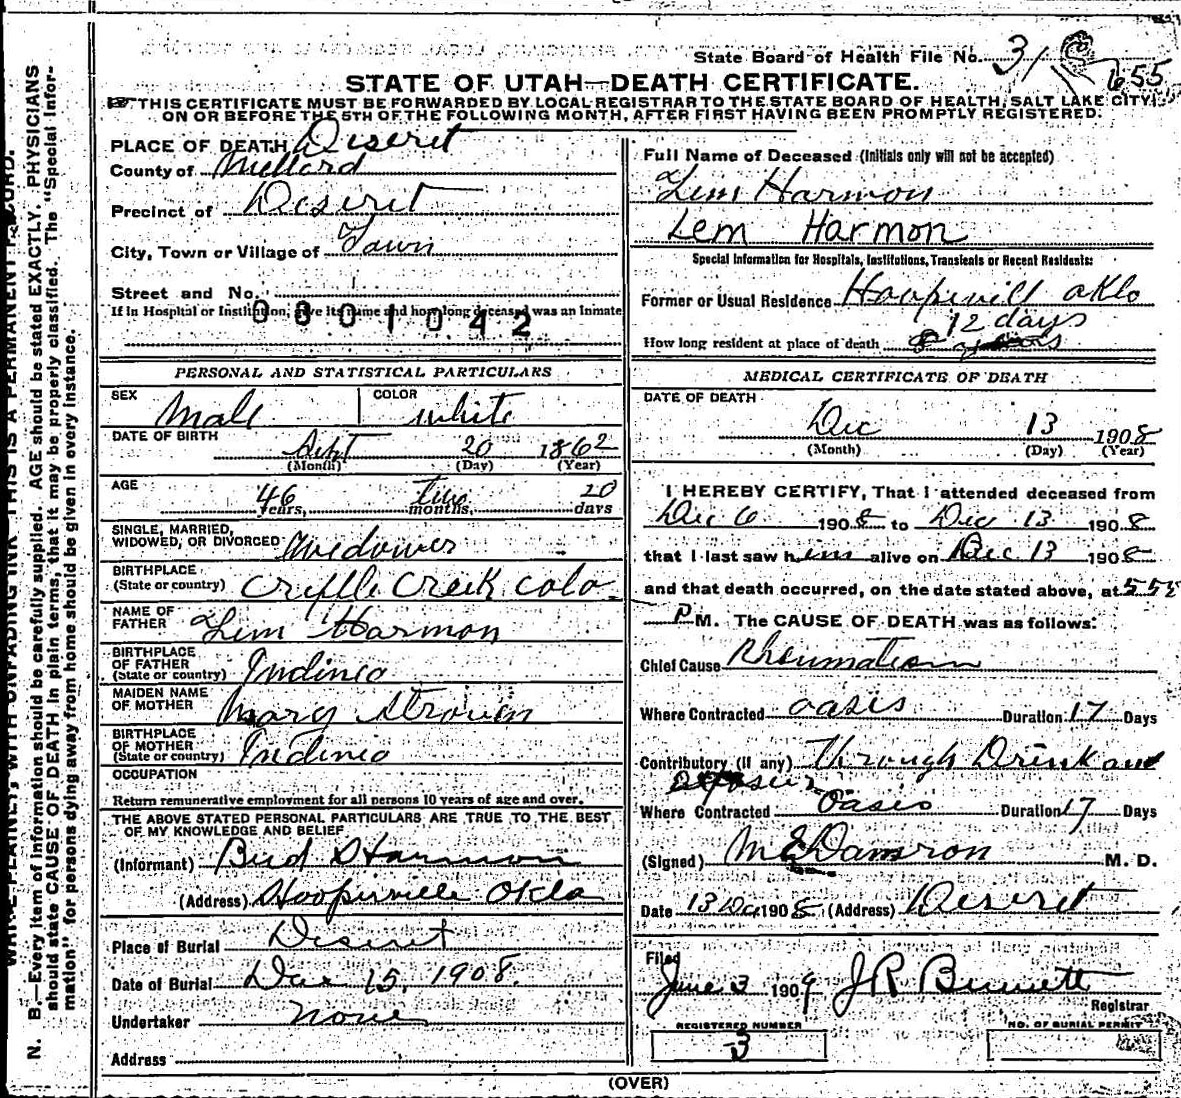 State Board of Health File No. 31 655
STATE OF UTAH—DEATH CERTIFICATE.
THIS CERTIFICATE MUST BE FORWARDED BY LOCAL REGISTRAR TO THE STATE BOARD OF HEALTH, SALT LAKE CITY,
ON OR BEFORE THE 5TH OF THE FOLLOWING MONTH, AFTER FIRST HAVING BEEN PROMPTLY REGISTERED.
PLACE OF DEATH Deseret
County of Millard
Precinct of Deseret
City, Town or Village of Town
Street and No.
If in Hospital or Institution, give its name and how long deceased was an Inmate
0001042
PERSONAL AND STATISTICAL PARTICULARS
SEX Male COLOR white
DATE OF BIRTH Sept 20 1862
(Month) (Day) (Year)
AGE 46 Two 20
years, months, days
SINGLE, MARRIED,
WIDOWED, OR DIVORCED Widower
BIRTHPLACE
(State or country) Cryple Creek Colo
NAME OF
FATHER Lem Harmon
BIRTHPLACE
OF FATHER
(State or country) Indinia
MAIDEN NAME
OF MOTHER Mary
BIRTHPLACE
OF MOTHER
(State or country) Indinia
OCCUPATION
Return remunerative employment for all persons 10 years of age and over.
THE ABOVE STATED PERSONAL PARTICULARS ARE TRUE TO THE BEST
OF MY KNOWLEDGE AND BELIEF
(Informant) Bud Harmon
(Address) Hooperville Okla
Place of Burial Deseret
Date of Burial Dec 15, 1908.
Undertaker none
Address
Full Name of Deceased (Initials only will not be accepted)
Lem Harmon
Lem Harmon
Special Information for Hospitals, Institutions, Transients or Recent Residents:
Former or Usual Residence Hoopevill oklo
12 days
How long resident at place of death
MEDICAL CERTIFICATE OF DEATH
DATE OF DEATH
Dec 13 1908
(Month) (Day) (Year)
I HEREBY CERTIFY, That I attended deceased from
Dec 6 1908 to Dec 13 1908
that I last saw him alive on Dec 13 1908
and that death occurred, on the date stated above, at 555
P M. The CAUSE OF DEATH was as follows:
Chief Cause Rheumatism
Where Contracted oasis Duration 17 Days
Contributory (if any) Through Drink and
Where Contracted Oasis Duration 17 Days
(Signed) M E Damron M. D.
Date 13 Dec 1908 (Address) Deseret
Filed
June 3 1909 J R Bennett
Registrar
REGISTERED NUMBER
3
NO. OF BURIAL PERMIT
(OVER)
N. B.—Every item of information should be carefully supplied. AGE should be stated EXACTLY. PHYSICIANS
should state CAUSE OF DEATH in plain terms, that it may be properly classified. The "Special Infor-
mation" for persons dying away from home should be given in every instance.
WRITE PLAINLY, WITH UNFADING INK—THIS IS A PERMANENT RECORD.